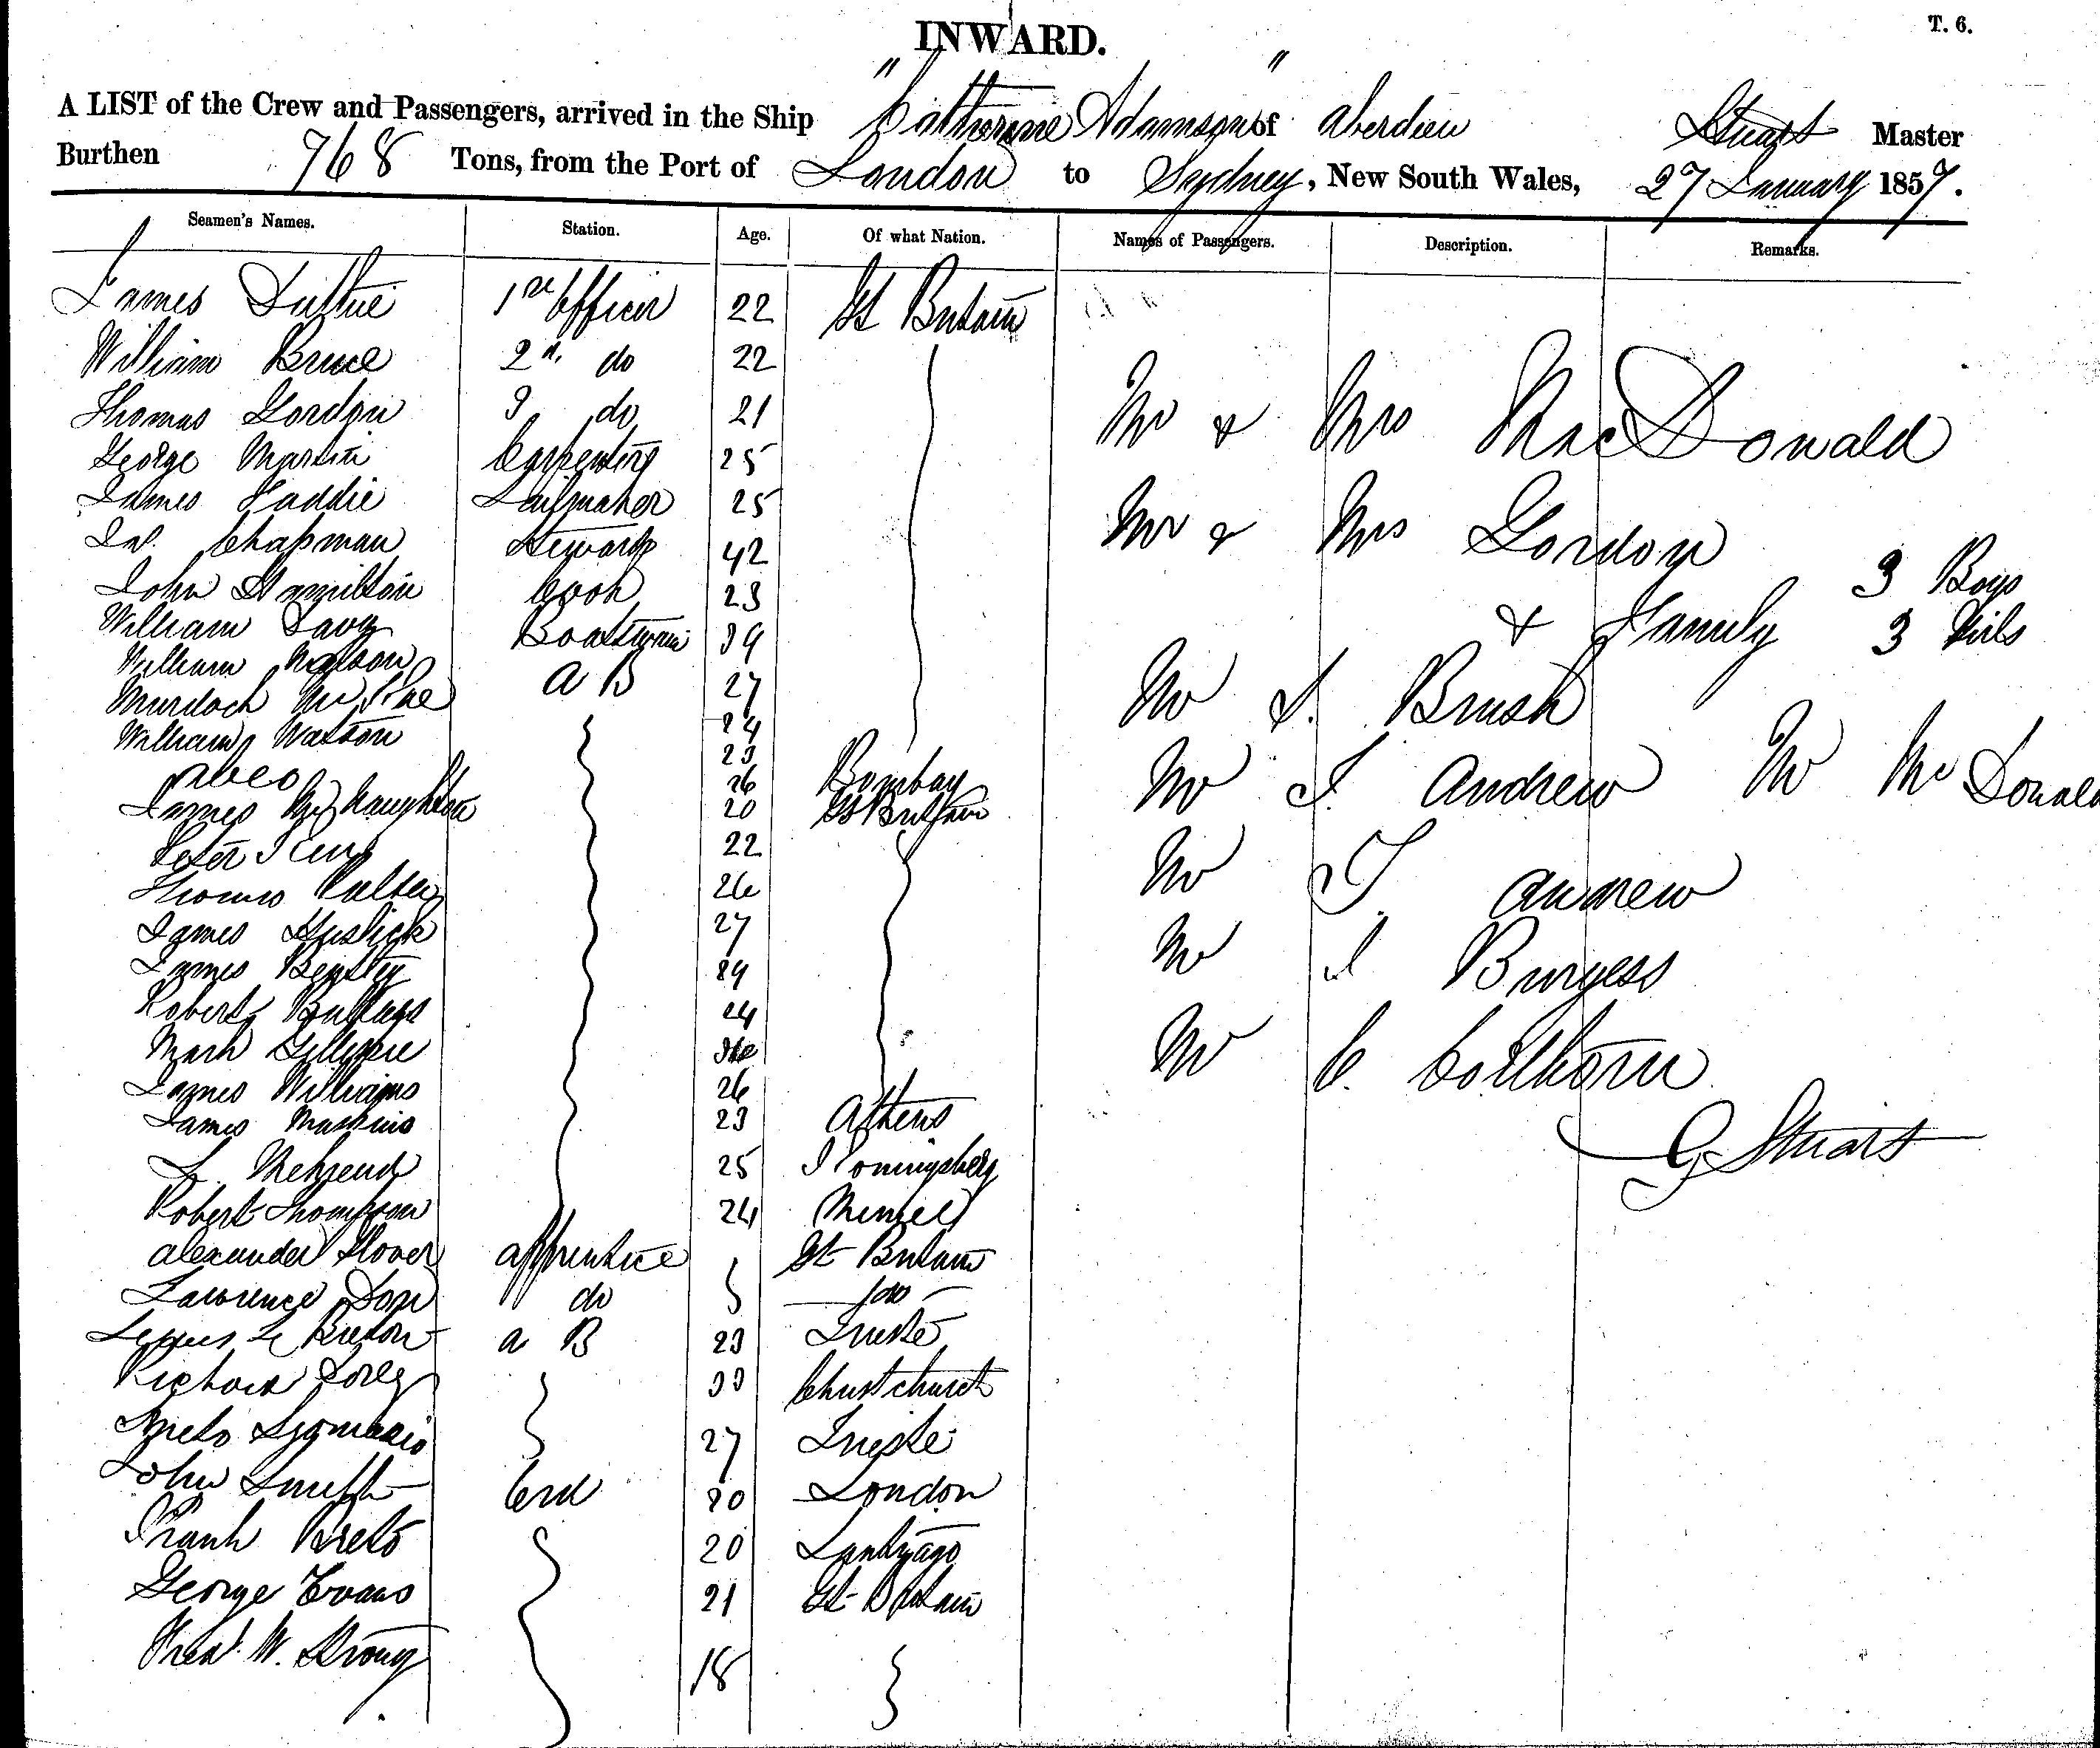 INWARD.
T. 6.
A LIST of the Crew and Passengers, arrived in the Ship "Catherine Adamson" of Aberdeen Stuart Master
Burthen 768 Tons, from the Port of London to Sydney, New South Wales, 27 January 1857.
Seamen's Names. Station. Age. Of what Nation. Names of Passengers. Description. Remarks.
James Duthie 1st Officer 22 Gt Britain
William Bruce 2d. do 22
Thomas Gordon 3 do 21
George Martin Carpenter 25
James Faddie Sailmaker 25
Jas. Chapman Steward 42
John Hamilton Cook 23
William Davy Boatswain 39
William Watson A B 27
Murdoch McRae 24
William Watson 23
Abeo 26 Bombay
James McNaughton 20 Gt Britain
Peter 22
Thomas 26
James 27
James 29
Robert 24
Mark Gillespie
James Williams 26
James 23 Athens
L. Behrend 25 Konningsberg
Robert Thompson 24 Memel
Alexander Glover Apprentice Gt Britain
Lawrence Don do do
Le Breton A B 23 Trieste
Richard 33 Christchurch
27 Trieste
John Smith Ord 20 London
Frank Breto 20 Santiago
George Evans 21 Gt Britain
Fred. W. Strong 18
Mr & Mrs MacDonald
Mr & Mrs Gordon 3 Boys
& Family 3 Girls
Mr J. Brush
Mr J. Andrew Mr McDonald
Mr T. Andrew
Mr J Burgess
Mr C. Colthorn
G Stuart